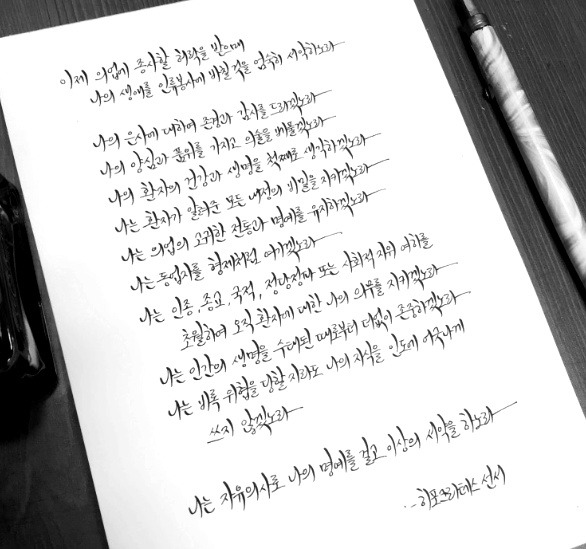 이제 의업에 종사할 허락을 받으매
나의 생애를 인류봉사에 바칠 것을 엄숙히 서약하노라
나의 은사에 대하여 존경과 감사를 드리겠노라
나의 양심과 품위를 가지고 의술을 베풀겠노라
나의 환자의 건강과 생명을 첫째로 생각하겠노라
나는 환자가 알려준 모든 내정의 비밀을 지키겠노라
나는 의업의 고귀한 전통과 명예를 유지하겠노라
나는 동업자를 형제처럼 여기겠노라
나는 인종, 종교, 국적, 정당정파 또는 사회적 지위 여하를
초월하여 오직 환자에 대한 나의 의무를 지키겠노라
나는 인간의 생명을 수태된 때로부터 더없이 존중하겠노라
나는 비록 위협을 당할지라도 나의 지식을 인도에 어긋나게
쓰지 않겠노라
나는 자유의사로 나의 명예를 걸고 이상의 서약을 하노라
·-히포크라테스 선서